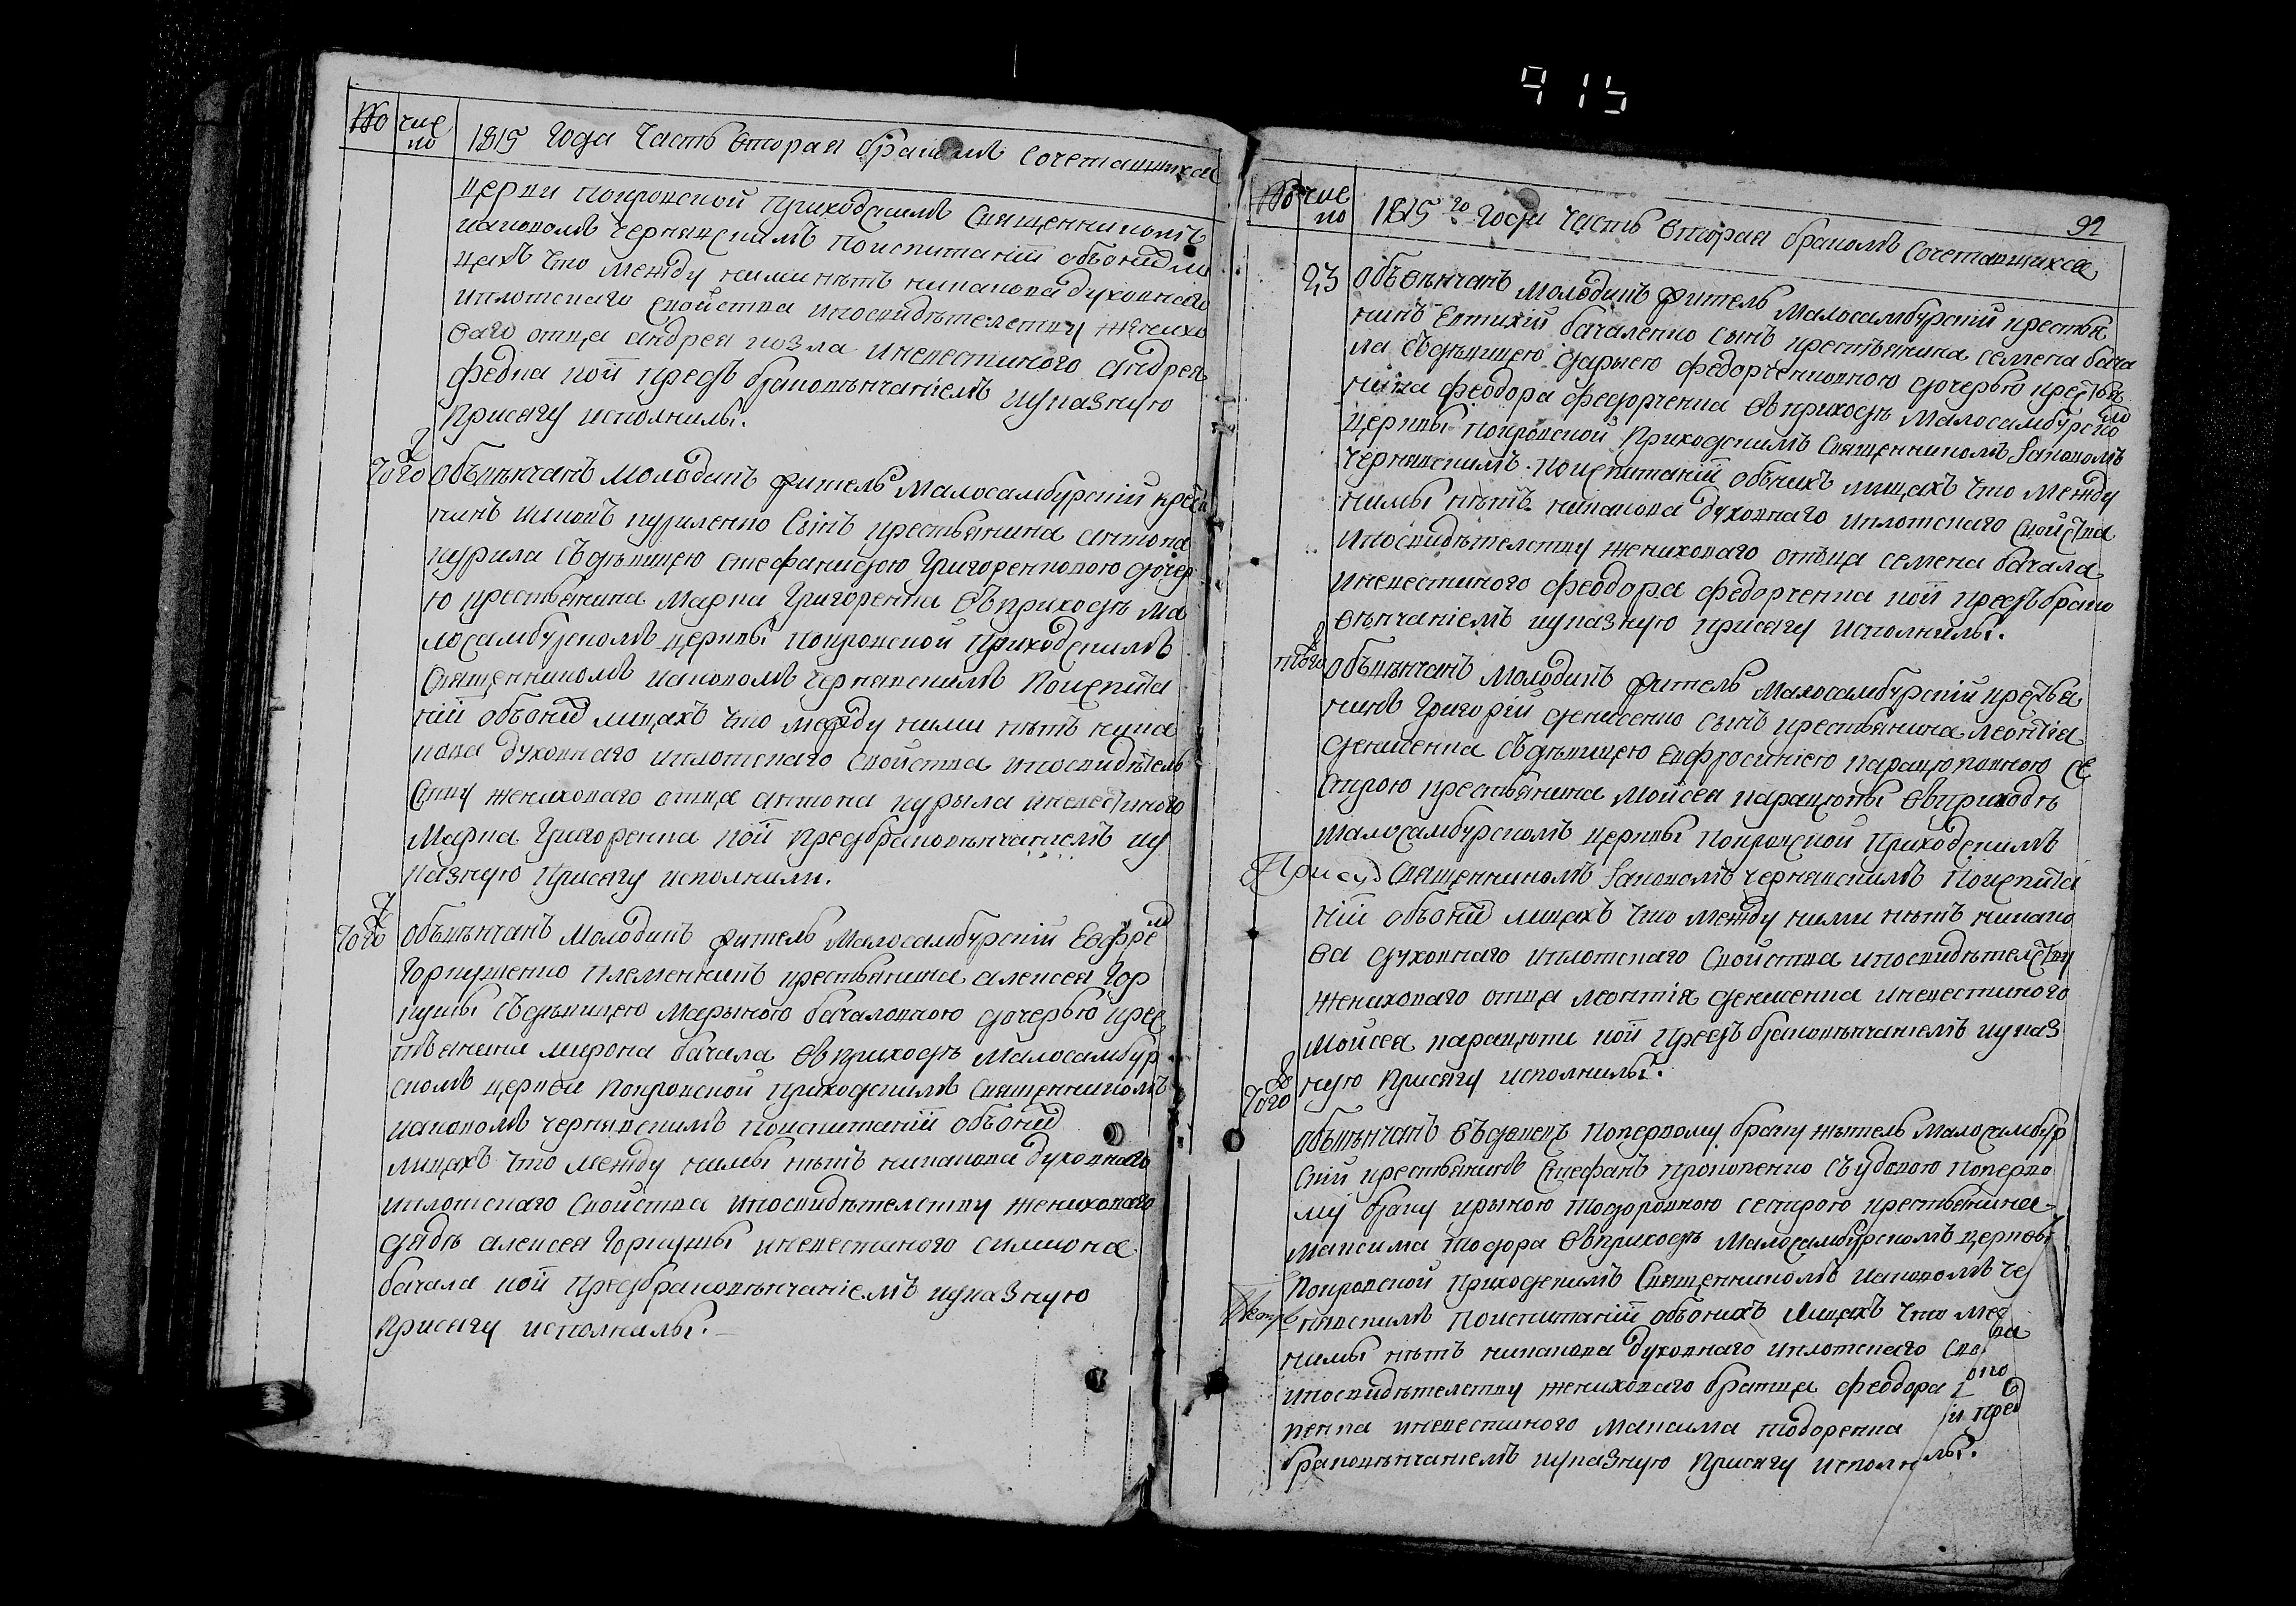 415
No число 1815 года Часть вторая бракомъ Сочетавшихся
церкви покровской Приходскимъ Священникомъ
иаковомъ чернявскимъ поиспитаніи обьоныд ли
цахъ что между ними нѣтъ никакова духовнаго
иплотскаго свойства ипосвидѣтелству женихо
ваго отца андрея козла иневестиного андрея
федка кои предъ браковѣнчаніемъ иуказную
Присягу исполнилы.
того объвѣнчанъ Молодикъ житель Малосамбурскій крестя
нинъ куриленко Сынъ крестьянина антона
курила Съдѣвицею стефанидою Григоренковою дочер
ю крестьянина Марка Григоренка въприходѣ ма
лосамбурскомъ церквы покровской Приходскимъ
Священникомъ иаковомъ чернявскимъ Поиспита
ній обьоныд лицахъ что между ними нѣтъ ника
кова духовнаго иплотскаго свойства ипосвидѣтель
ству жениховаго отца антона курыла иневестиного
Марка Григоренка кои предбраковѣнчаніемъ иу
казную Присягу исполнили.
того объвѣнчанъ Молодикъ житель Малосамбурскій Евфрем
Горкушенко племенникъ крестьянина алексея Гор
кушы Съдѣвицею Марыною бачаловною дочерью крес
тьянина мирона бачала въприходѣ Малосамбур
скомъ церкви покровской приходскимъ Священникомъ
иаковомъ чернявскимъ поиспитаній обьоныд
лицахъ что между нимы нѣтъ никакова духовнаго
иплотскаго свойства ипосвидѣтелству жениховаго
дядѣ алексея Горкушы иневестиного симиона
бачала кои предбраковѣнчаніемъ иуказную
Присягу исполнилы.
92
No число 1815го года часть вторая бракомъ Сочетавшихся
23 объвѣнчанъ молодикъ житель малосамбурскій крестья
нинъ Евтихій бачаленко сынъ крестьянина семена бача
ла Съдѣвицею дарыею федорченковною дочерью крестья
нина феодора федорченка въприходѣ Малосамбурском
церквы покровской Приходскимъ Священникомъ Іаковомъ
чернявскимъ поиспитаній обьнихъ лицахъ что между
нимы нѣтъ никакова духовнаго иплотскаго свойства
ипосвидѣтелству жениховаго отьца семена бачала
иневестиного феодора федорченка кои предъбрако
вѣнчаніемъ иуказную присягу исполнилы.
того объвѣнчанъ Молодикъ житель Малосамбурскій крестья
нинъ Григорій денисенко сынъ крестьянина леонтія
денисенка Съдѣвицею евфросиніею паращюковною се
строю крестьянина Мойсея паращюкы въприходѣ
малосамбурскомъ церквы покровской Приходскимъ
Священникомъ Іаковомъ чернявскимъ поиспита
ній обьоныд лицахъ что между ними нѣтъ никако
ва духовнаго иплотскаго свойства ипосвидѣтелству
жениховаго отца леонтія денисенка иневестиного
Мойсея паращюки кои предъ браковѣнчаніемъ иуказ
ную Присягу исполнилы.
того объвѣнчанъ вьдовецъ попервому браку жытель Малосамбур
скій крестьянинъ Стефанъ прокопенко съудовою поперво
му браку ирыною тодоровною сестрою крестьянина
максима тодора въприходѣ Малосамбурскомъ церквы
покровской приходскимъ Священникомъ иаковомъ че
нявскимъ поиспитаній обьонихъ лицахъ что меж
нимы нѣтъ никакова духовнаго иплотскаго сво
ипосвидѣтелству жениховаго братца феодора
пенка иневестиного максима тодоренка и пред
браковѣнчаніемъ иуказную Присягу исполнилы.